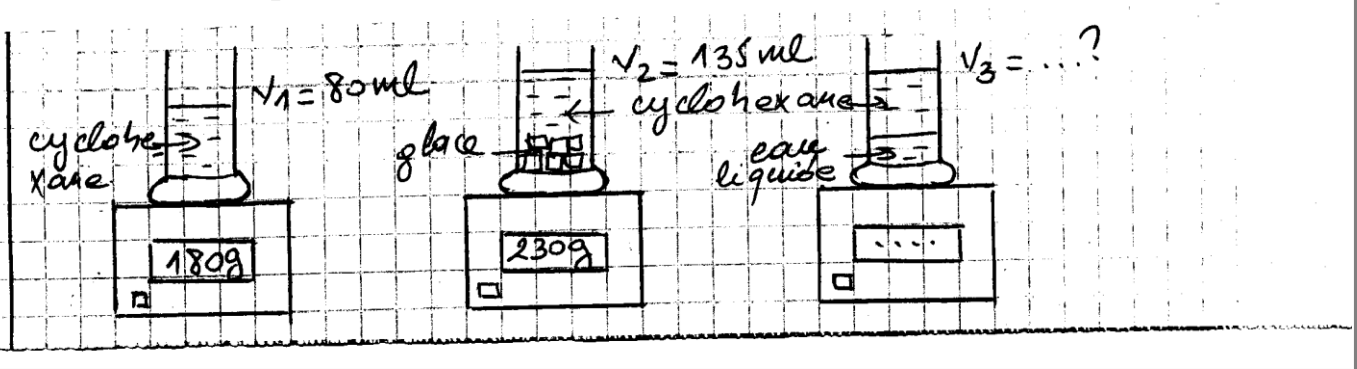 V1 = 80ml
cyclohe
xane
180g
V2 = 135ml
cyclohexane
glace
230g
V3 = ....?
eau
liquide
....